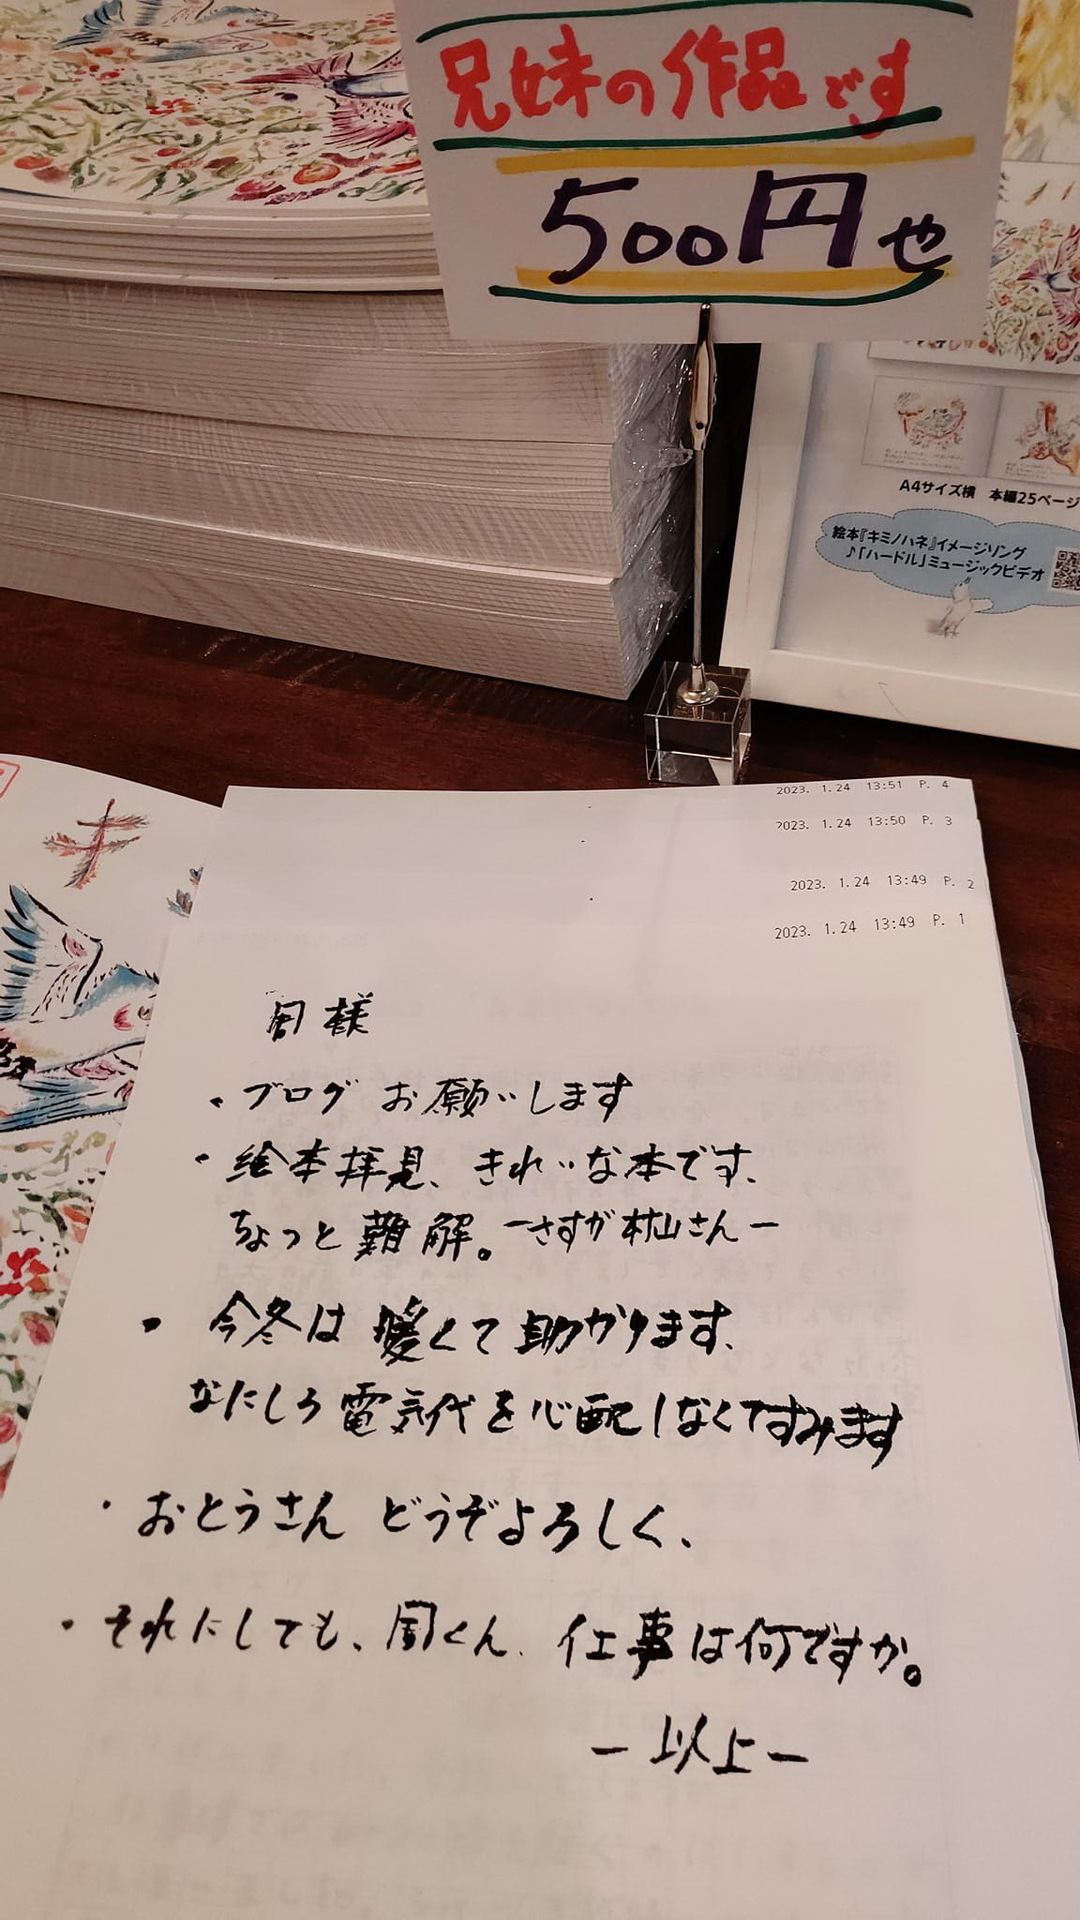 兄妹の作品です
500円也
A4サイズ横 本編25ページ
絵本『キミノハネ』イメージソング
♪「ハードル」ミュージックビデオ
キ
2023. 1.24 13:51 P. 4
2023. 1.24 13:50 P. 3
2023. 1.24 13:49 P. 2
2023. 1.24 13:49 P. 1
周様
・ブログ お願いします
・絵本拝見、きれいな本です、
ちょっと難解。ーさすが村山さんー
・今冬は暖くて助かります、
なにしろ電気代を心配しなくてすみます
・おとうさん どうぞよろしく、
・それにしても、周くん、仕事は何ですか。
ー以上ー